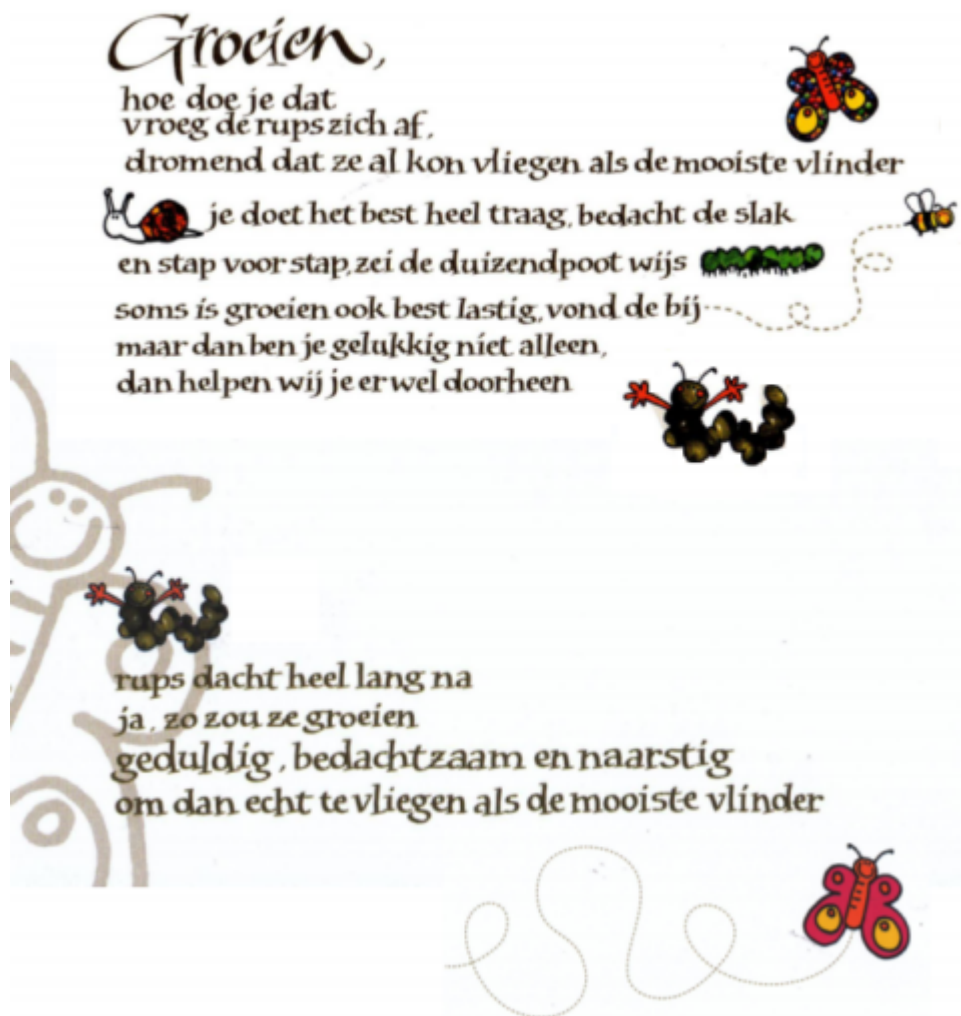 Groeien,
hoe doe je dat
vroeg de rups zich af,
dromend dat ze al kon vliegen als de mooiste vlinder
je doet het best heel traag, bedacht de slak
en stap voor stap, zei de duizendpoot wijs
soms is groeien ook best lastig, vond de bij
maar dan ben je gelukkig niet alleen,
dan helpen wij je er wel doorheen
rups dacht heel lang na
ja, zo zou ze groeien
geduldig, bedachtzaam en naarstig
om dan echt te vliegen als de mooiste vlinder